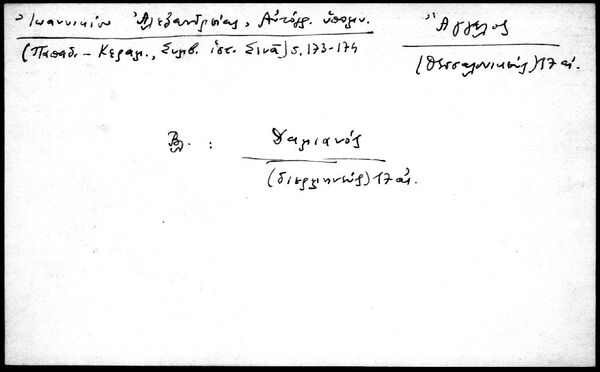 Ἰωαννικίου Ἀλεξανδρείας, Αὐτόγρ. ὑπομν.
(Παπαδ.-Κεραμ., Συμβ. ἱστ. Σινᾶ) σ. 173-174
Ἄγγελος
(Θεσσαλονικεύς) 17 αἰ.
Βλ. : Δαμιανός
(διερμηνεύς) 17 αἰ.